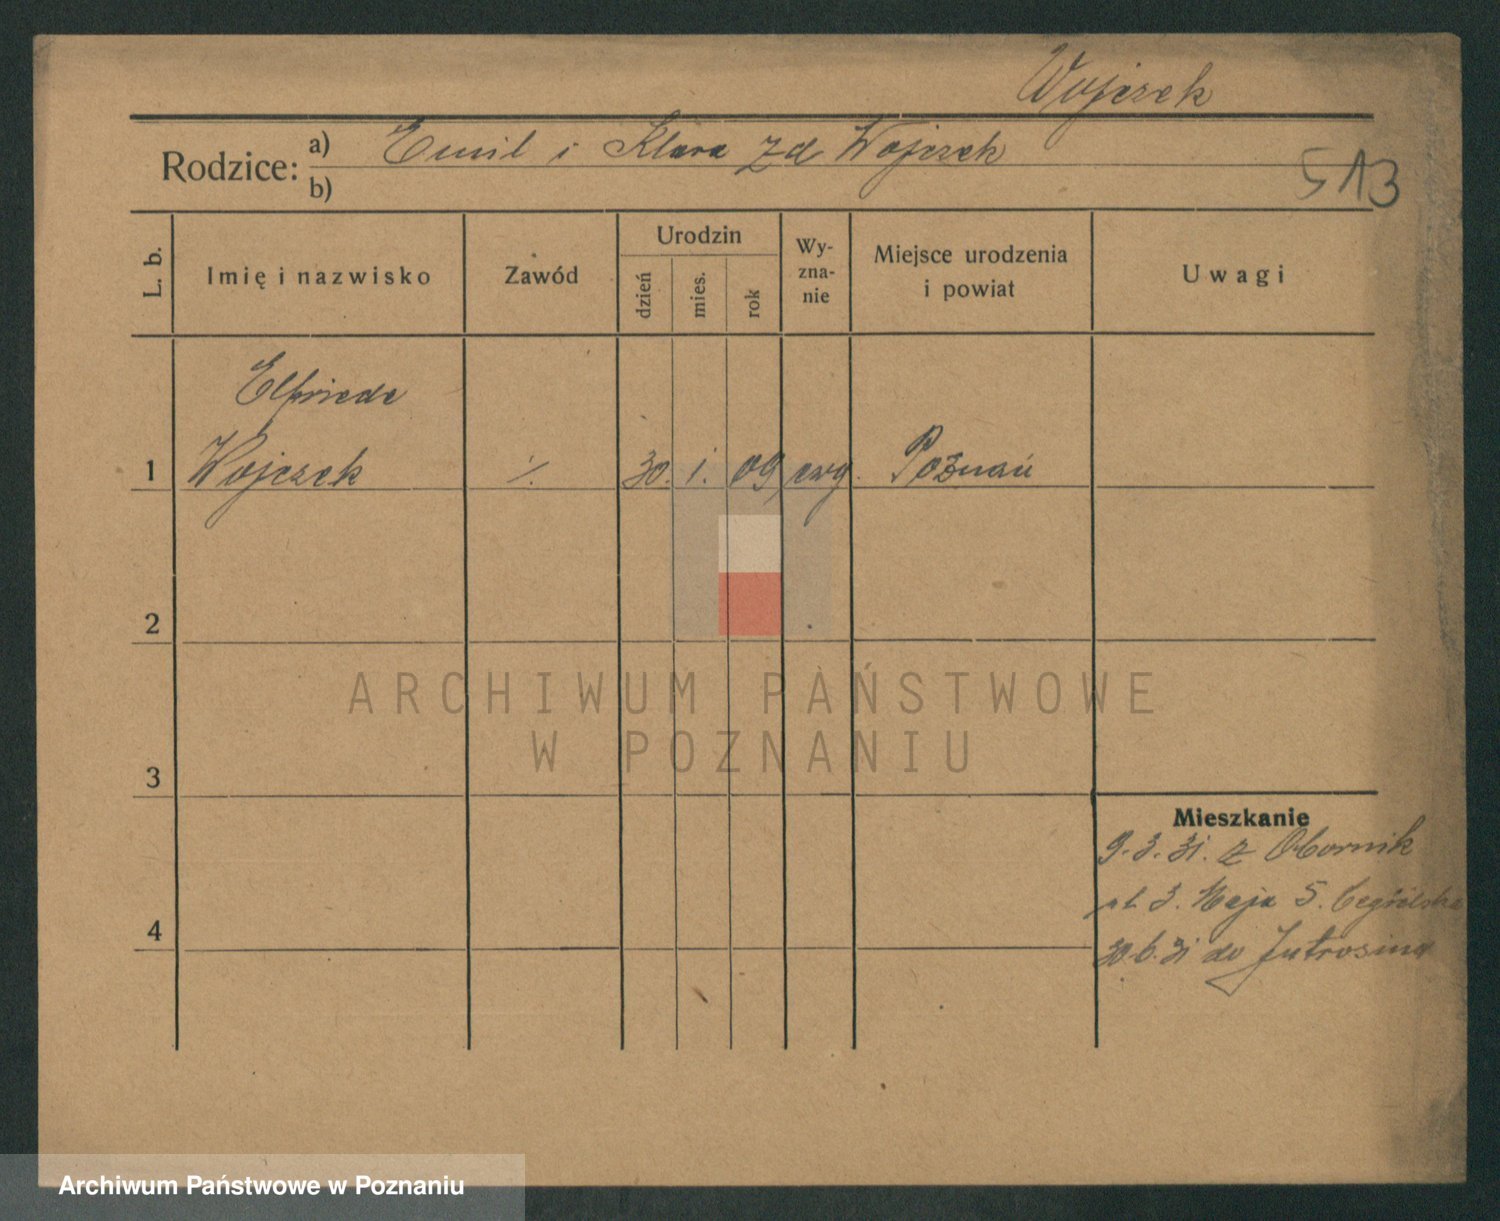 Wojczek
Rodzice: a) Emil i Klara zd Wojczek
b)
513
L. b.
Imię i nazwisko
Zawód
Urodzin
dzień
mies.
rok
Wy-
zna-
nie
Miejsce urodzenia
i powiat
Uwagi
Elfriede
1 Wojczek ./. 30. 1. 09 ewg. Poznań
2
3
4
ARCHIWUM PAŃSTWOWE
W POZNANIU
Mieszkanie
9.3.31. z Obornik
3. Maja 5.
30.6.31 do Jutrosina
Archiwum Państwowe w Poznaniu